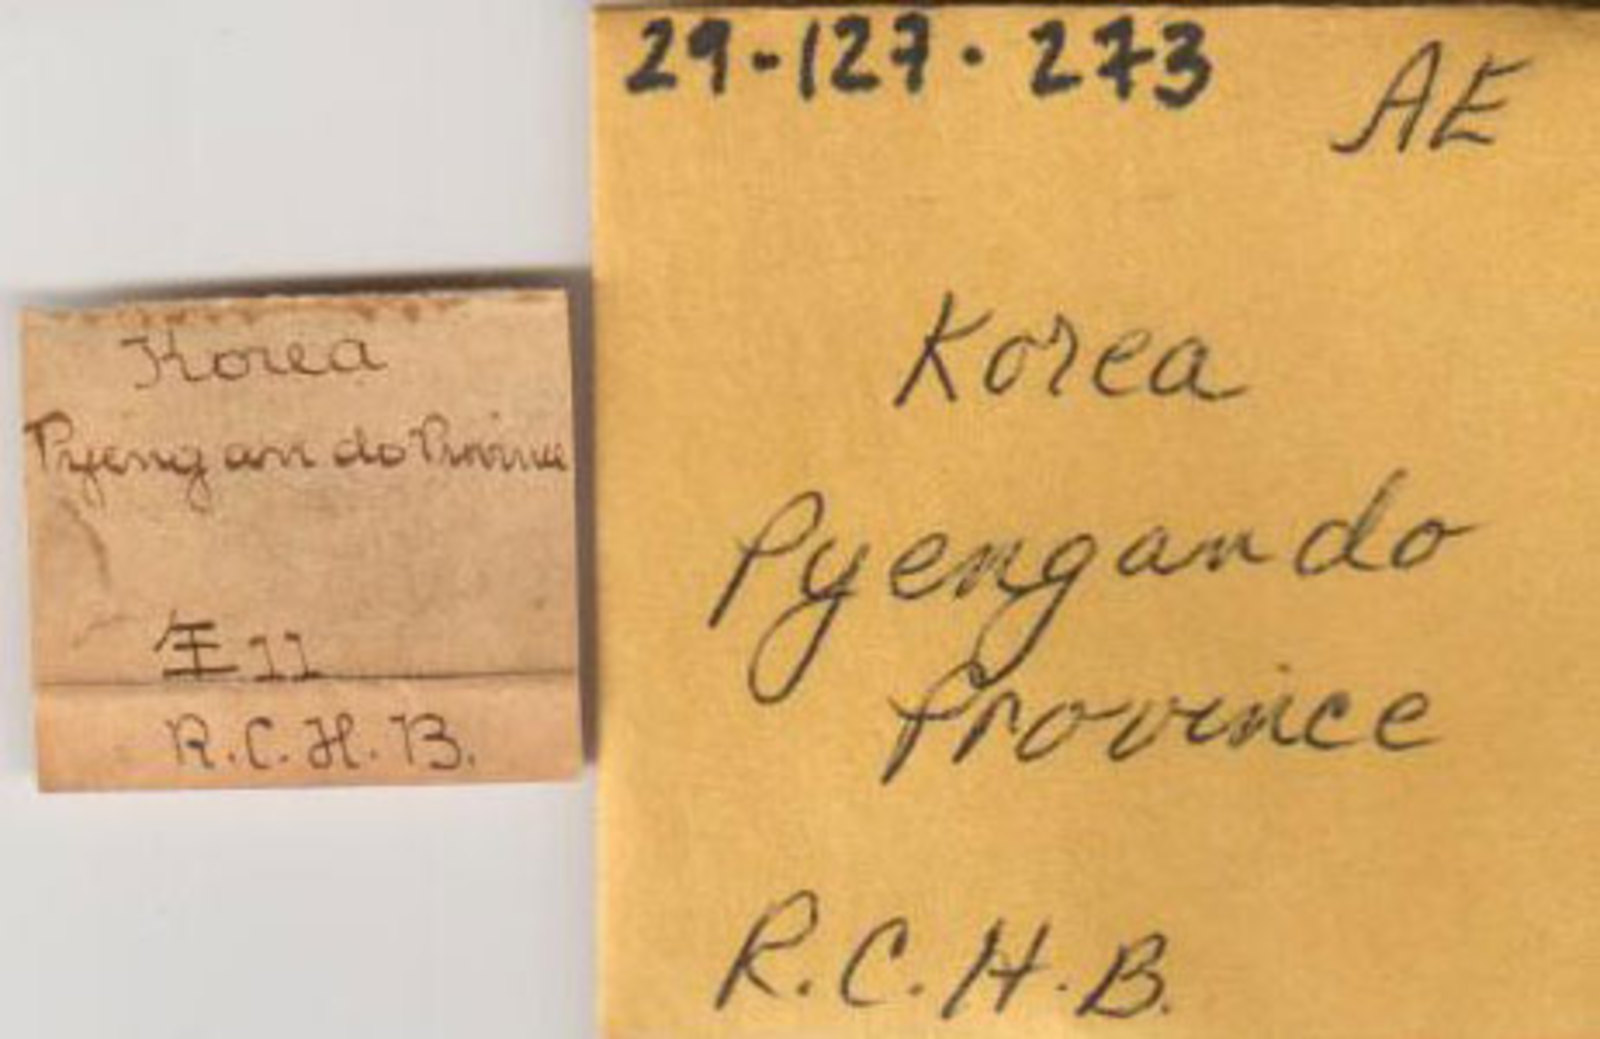 Korea
Pyengan do Province
R.C.H.B.
29-127-273
AE
Korea
Pyengan do
Province
R.C.H.B.